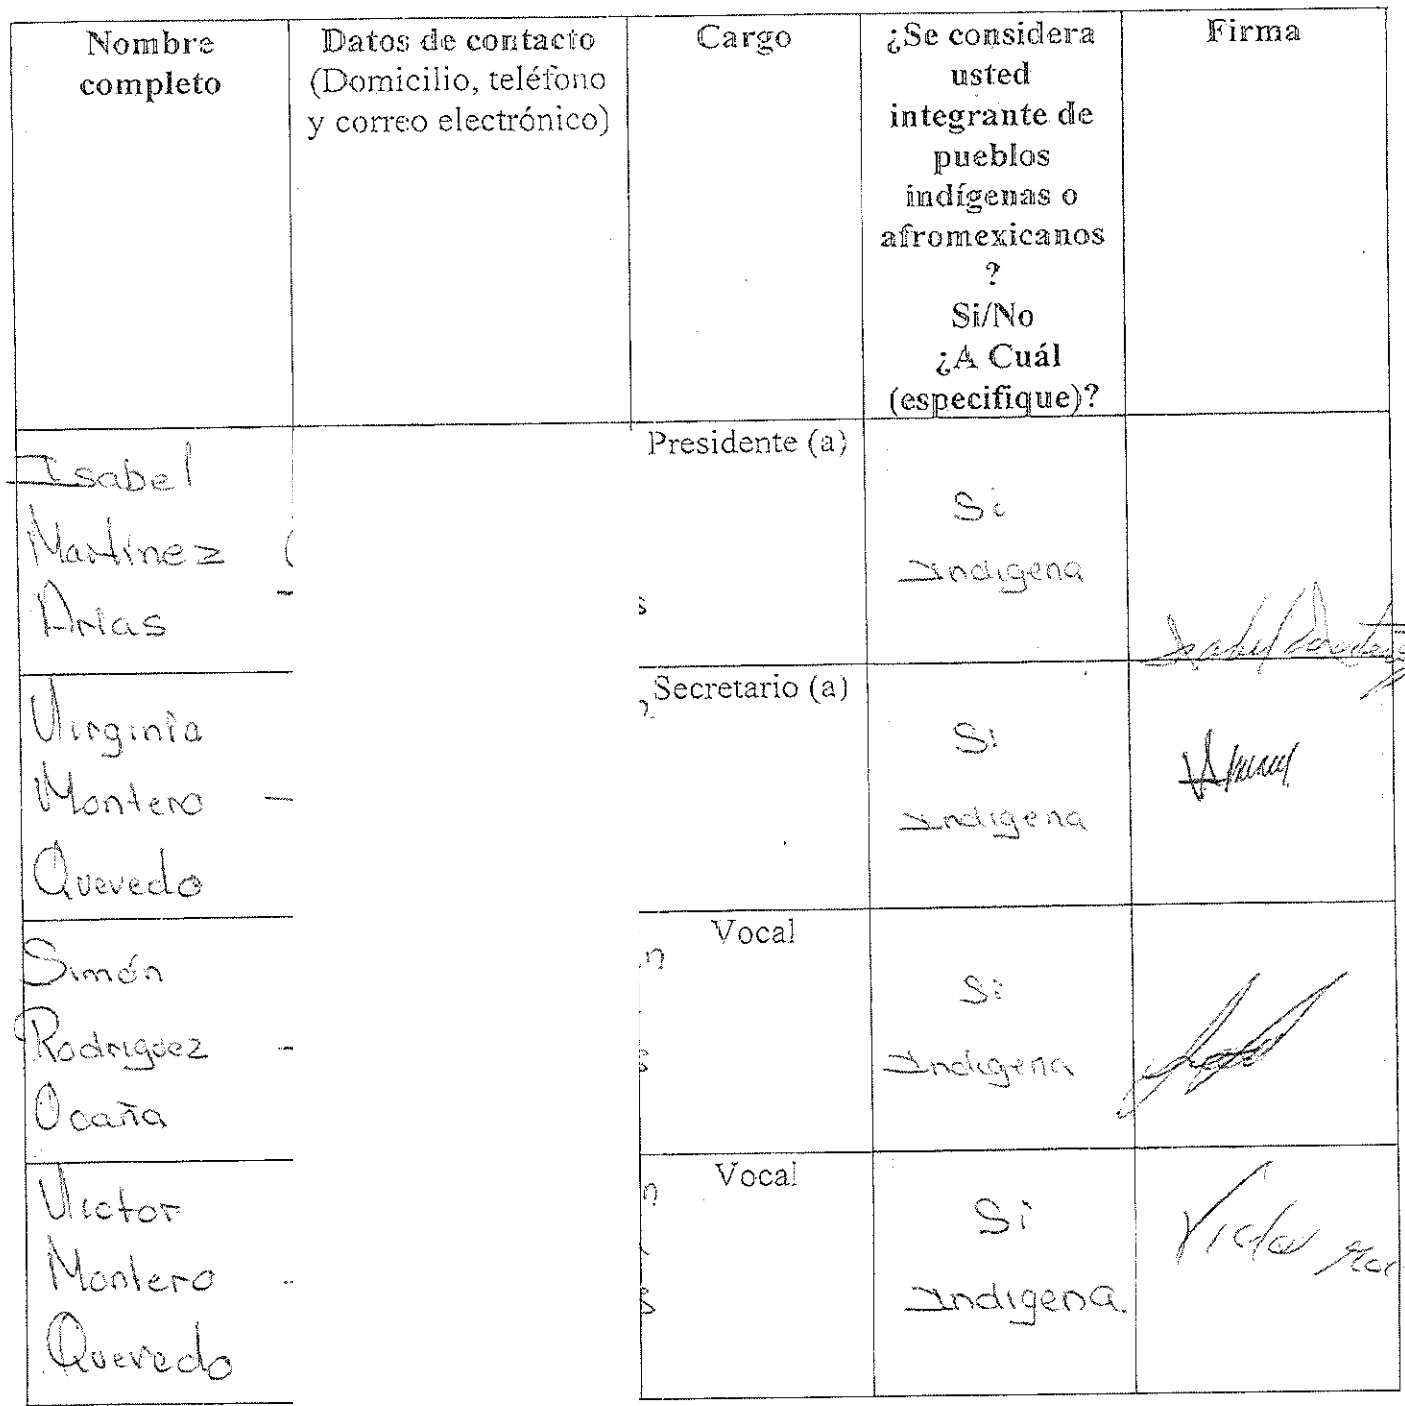 Nombre
completo
Datos de contacto
(Domicilio, teléfono
y correo electrónico)
Cargo
¿Se considera
usted
integrante de
pueblos
indígenas o
afromexicanos
?
Si/No
¿A Cuál
(especifique)?
Firma
Isabel
Martínez
Arias
Presidente (a)
Si
Indigena
Virginia
Montero
Quevedo
Secretario (a)
Si
Indigena
Simón
Rodriguez
Ocaña
Vocal
Si
Indigena
Victor
Montero
Quevedo
Vocal
Si
Indigena.
Victor